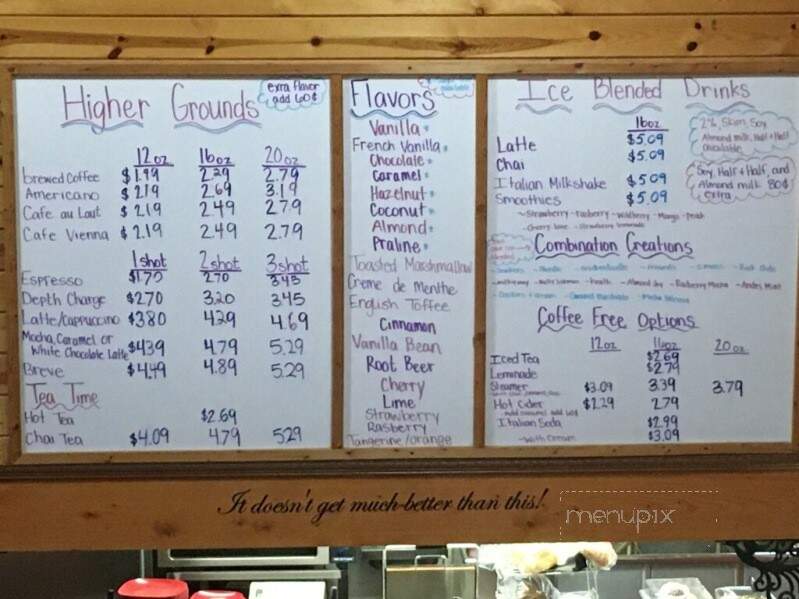 Higher Grounds
exra flavor
add 60¢
12oz 16oz 20oz
brewed Coffee $1.99 2.29 2.79
Americano $2.19 2.69 3.19
Cafe au Laut $2.19 2.49 2.79
Cafe Vienna $2.19 2.49 2.79
1shot 2shot 3shot
Espresso $1.70 2.70 3.45
Depth Charge $2.70 3.20 3.45
Latte/Cappuccino $3.80 4.29 4.69
Mocha, Caramel or
White Chocolate Latte $4.39 4.79 5.29
Breve $4.49 4.89 5.29
Tea Time
Hot Tea $2.69
Chai Tea $4.09 4.79 5.29
Flavors
Vanilla
French Vanilla
Chocolate
Caramel
Hazelnut
Coconut
Almond
Praline
Toasted Marshmallow
Creme de Menthe
English Toffee
Cinnamon
Vanilla Bean
Root Beer
Cherry
Lime
Strawberry
Rasberry
Tangerine/Orange
Ice Blended Drinks
16oz
Latte $5.09
Chai $5.09
Italian Milkshake $5.09
Smoothies $5.09
~Strawberry ~Rasberry ~Wildberry ~Mango ~Peach
~Cherry lime ~Strawberry lemonade
2% Skim, Soy
Almond milk, Half+Half
available
Soy, Half+Half, and
Almond milk 80¢
extra
Combination Creations
Coffee Free Options
12oz 16oz 20oz
Iced Tea $2.69
Lemonade $2.79
Steamer $3.09 3.39 3.79
Hot Cider $2.29 2.79
~add caramel add 60¢
Italian Soda $2.99
~with cream $3.09
It doesn't get much better than this!
menupix